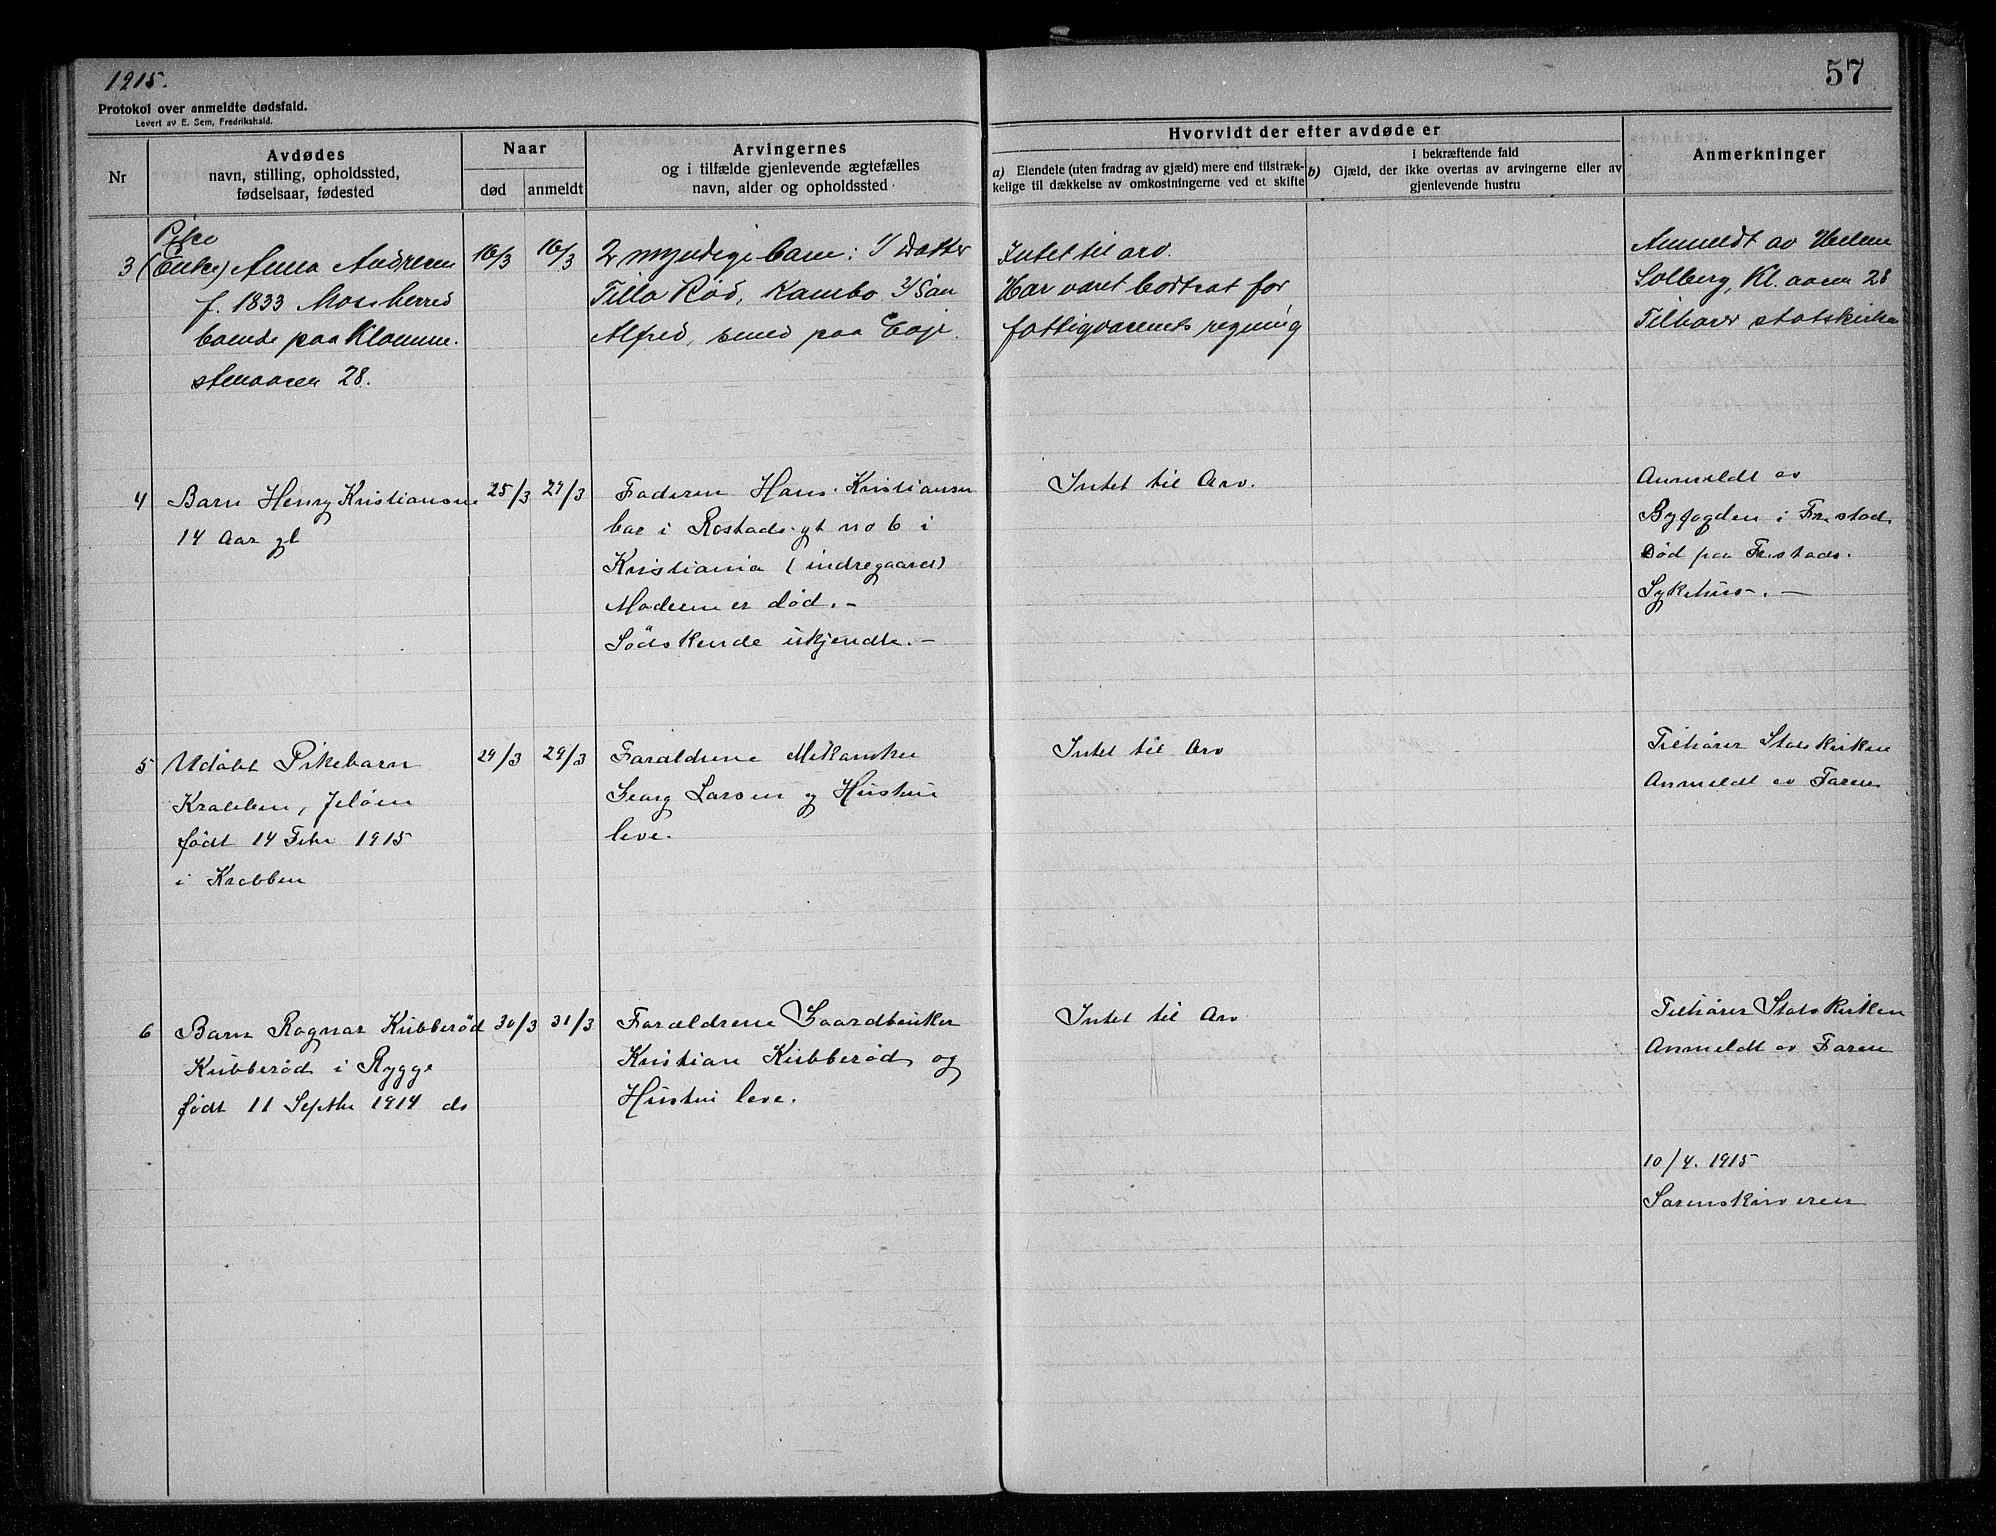 1915.
57
Protokol over anmeldte dødsfald.
Levert av E. Sem, Fredrikshald.
Nr
Avdødes
navn, stilling, opholdssted,
fødselsaar, fødested
Naar
død
anmeldt
Arvingernes
og i tilfælde gjenlevende ægtefælles
navn, alder og opholdssted
Hvorvidt der efter avdøde er
a) Eiendele (uten fradrag av gjæld) mere end tilstræk-
kelige til dækkelse av omkostningerne ved et skifte
i bekræftende fald
b) Gjæld, der ikke overtas av arvingerne eller av
gjenlevende hustru
Anmerkninger
Pike
3 (Enke) Anna Andresen
f. 1833 Moss herred
boende paa
28.
16/3
16/3
2 myndige barn: 1/ Datter
Tilla Rød, Kambo 2/ Søn
Alfred, smed paa Eoje.
Intet til arv.
Har været bortsat for
fattigvæsenets regning
Anmeldt av Helene
Solberg, Kl. aasen 28
Tilhører statskirken
4 Barn Henry Kristiansen
14 Aar gl
25/3
27/3
Faderen Hans Kristiansen
bor i Rostadsgt no 6 i
Kristiania (indregaarden)
Moderen er død. –
Södskende ukjendte. –
Intet til Arv.
Anmeldt av
Byfogden i Fr.stad.
Død paa Fr.stads.
Sykehus. –
5 Udøbt Pikebarn
Krabben, Jeløen
født 14 Febr 1915
i Krabben
29/3
29/3
Forældrene Mekaniker
Georg Larsen og Hustru
leve.
Intet til Arv
Tilhører Statskirken
Anmeldt av Faren
6 Barn Ragnar Kubberød
Kubberød i Rygge
født 11 Septbr 1914 do
30/3
31/3
Forældrene Gaardbruker
Kristian Kubberød og
Hustru leve.
Intet til Arv
Tilhører Statskirken
Anmeldt av Faren
10/4. 1915
Sorenskriveren